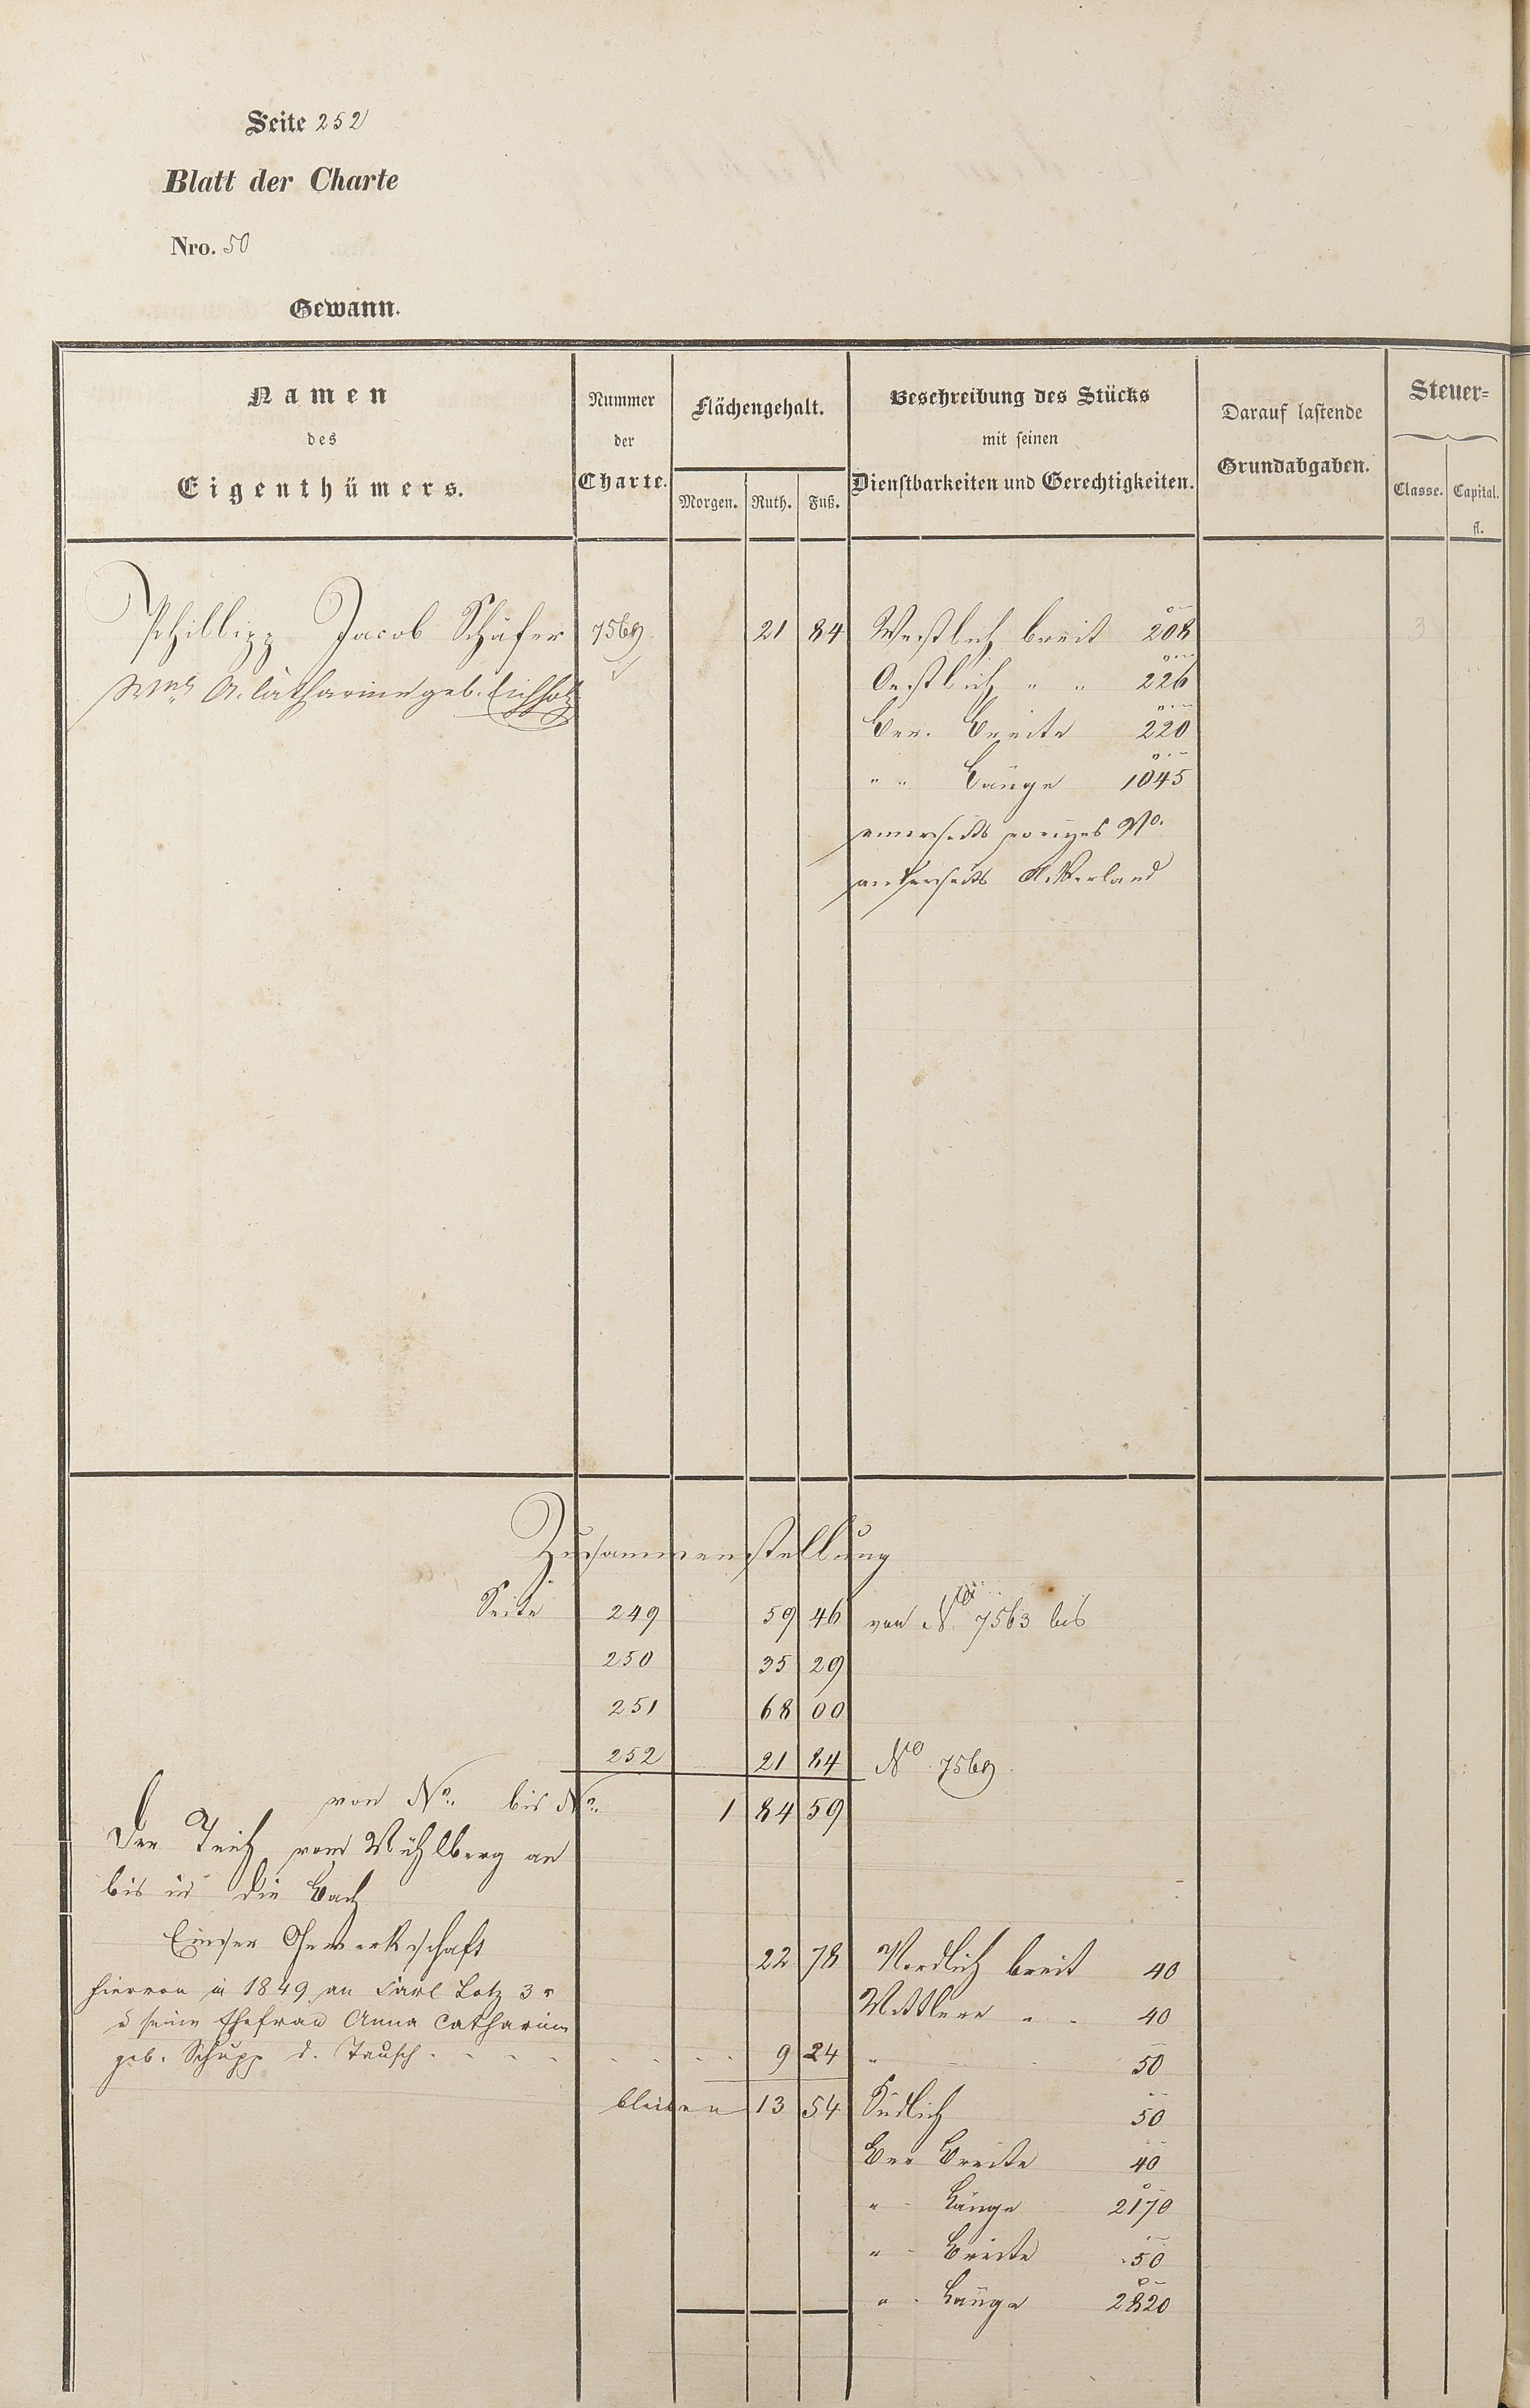 Seite 252
Blatt der Charte
Nro. 50
Gewann.
Namen des Eigenthümers.
Nummer der Charte.
Flächengehalt.
Morgen. Ruth. Fuß.
Beschreibung des Stücks mit seinen Dienstbarkeiten und Gerechtigkeiten.
Darauf lastende Grundabgaben.
Steuer=
Classe. Capital. fl.
Philipp Jacob Schäfer 7569 21 84 Westlich breit 208 3
A. Catharine geb. Eichholz Oestlich " " 226
Ber. Breite 220
" " Länge 1045
einerseits voriges No.
anderseits Ackerland
Zusammenstellung
Seite 249 59 46 von No 7563 bis
250 35 29
251 68 00
252 21 84 No 7569.
von No. bis No. 1 84 59
Der Teich vom Mühlberg an
bis in die Bach
Emser Gewerkschaft 22 78 Nordlich breit 40
hiervon in 1849 an Carl Lotz 3r Mittlere " " 40
u seine Ehefrau Anna Catharine
geb. Schupp d. Tausch 9 24 " 50
bleiben 13 54 Südlich 50
Ber Breite 40
" " Länge 2170
" " Breite 50
" " Länge 2820